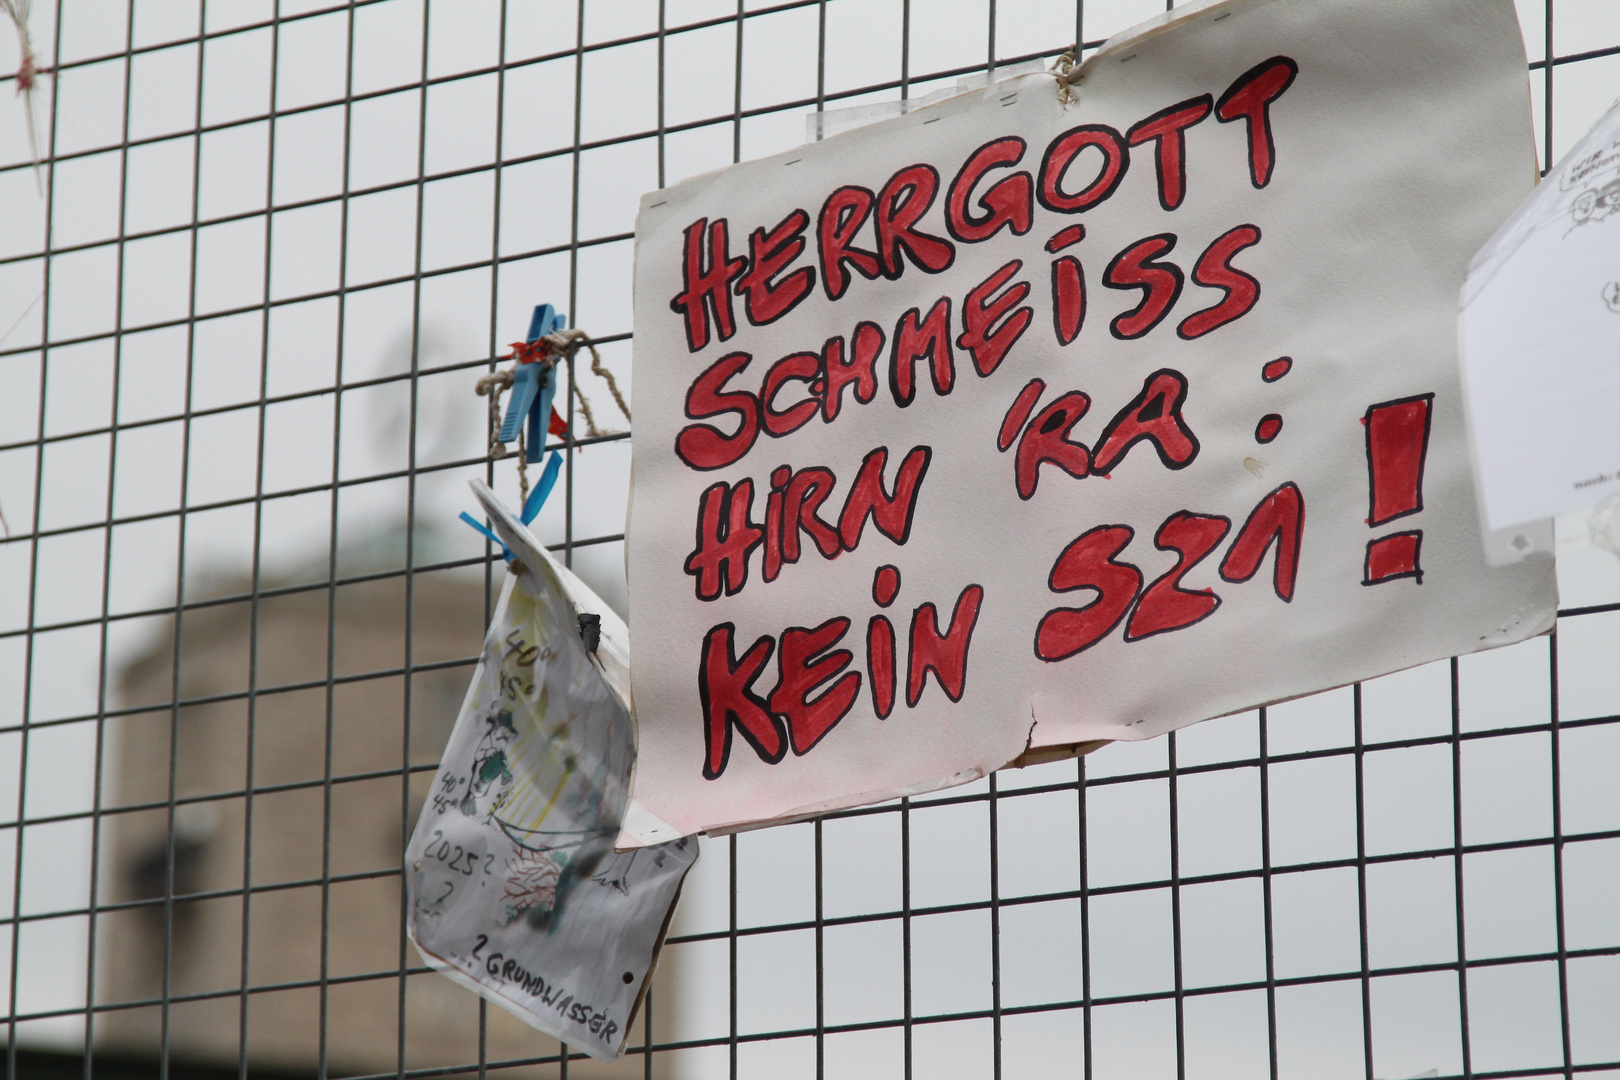 HERRGOTT
SCHMEiSS
HiRN 'RA :
KEiN SZ1 !
40°
45°
40°
45°
2025?
?
... ? GRUNDWASSER
WIR